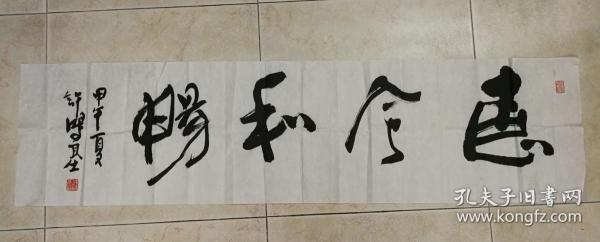 惠風和暢
甲午夏
許鴻基
孔夫子旧书网
www.kongfz.com